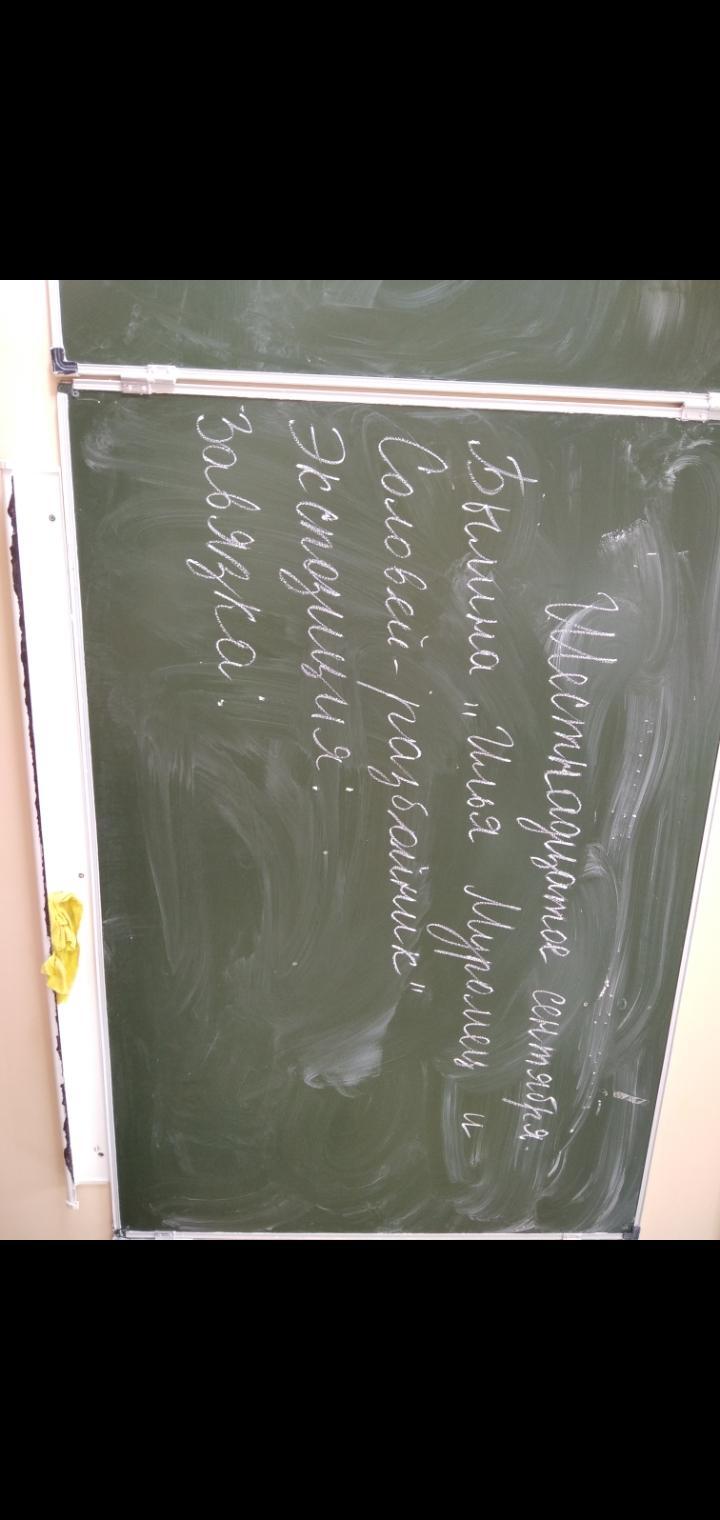 Шестнадцатое сентября.
Былина „Илья Муромец и
Соловей-разбойник"
Экспозиция:
Завязка: